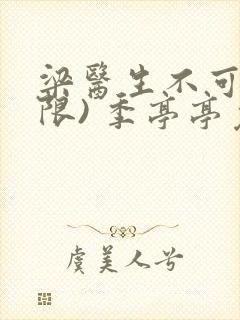 梁醫生不可
限) 季亭亭
虞美人兮